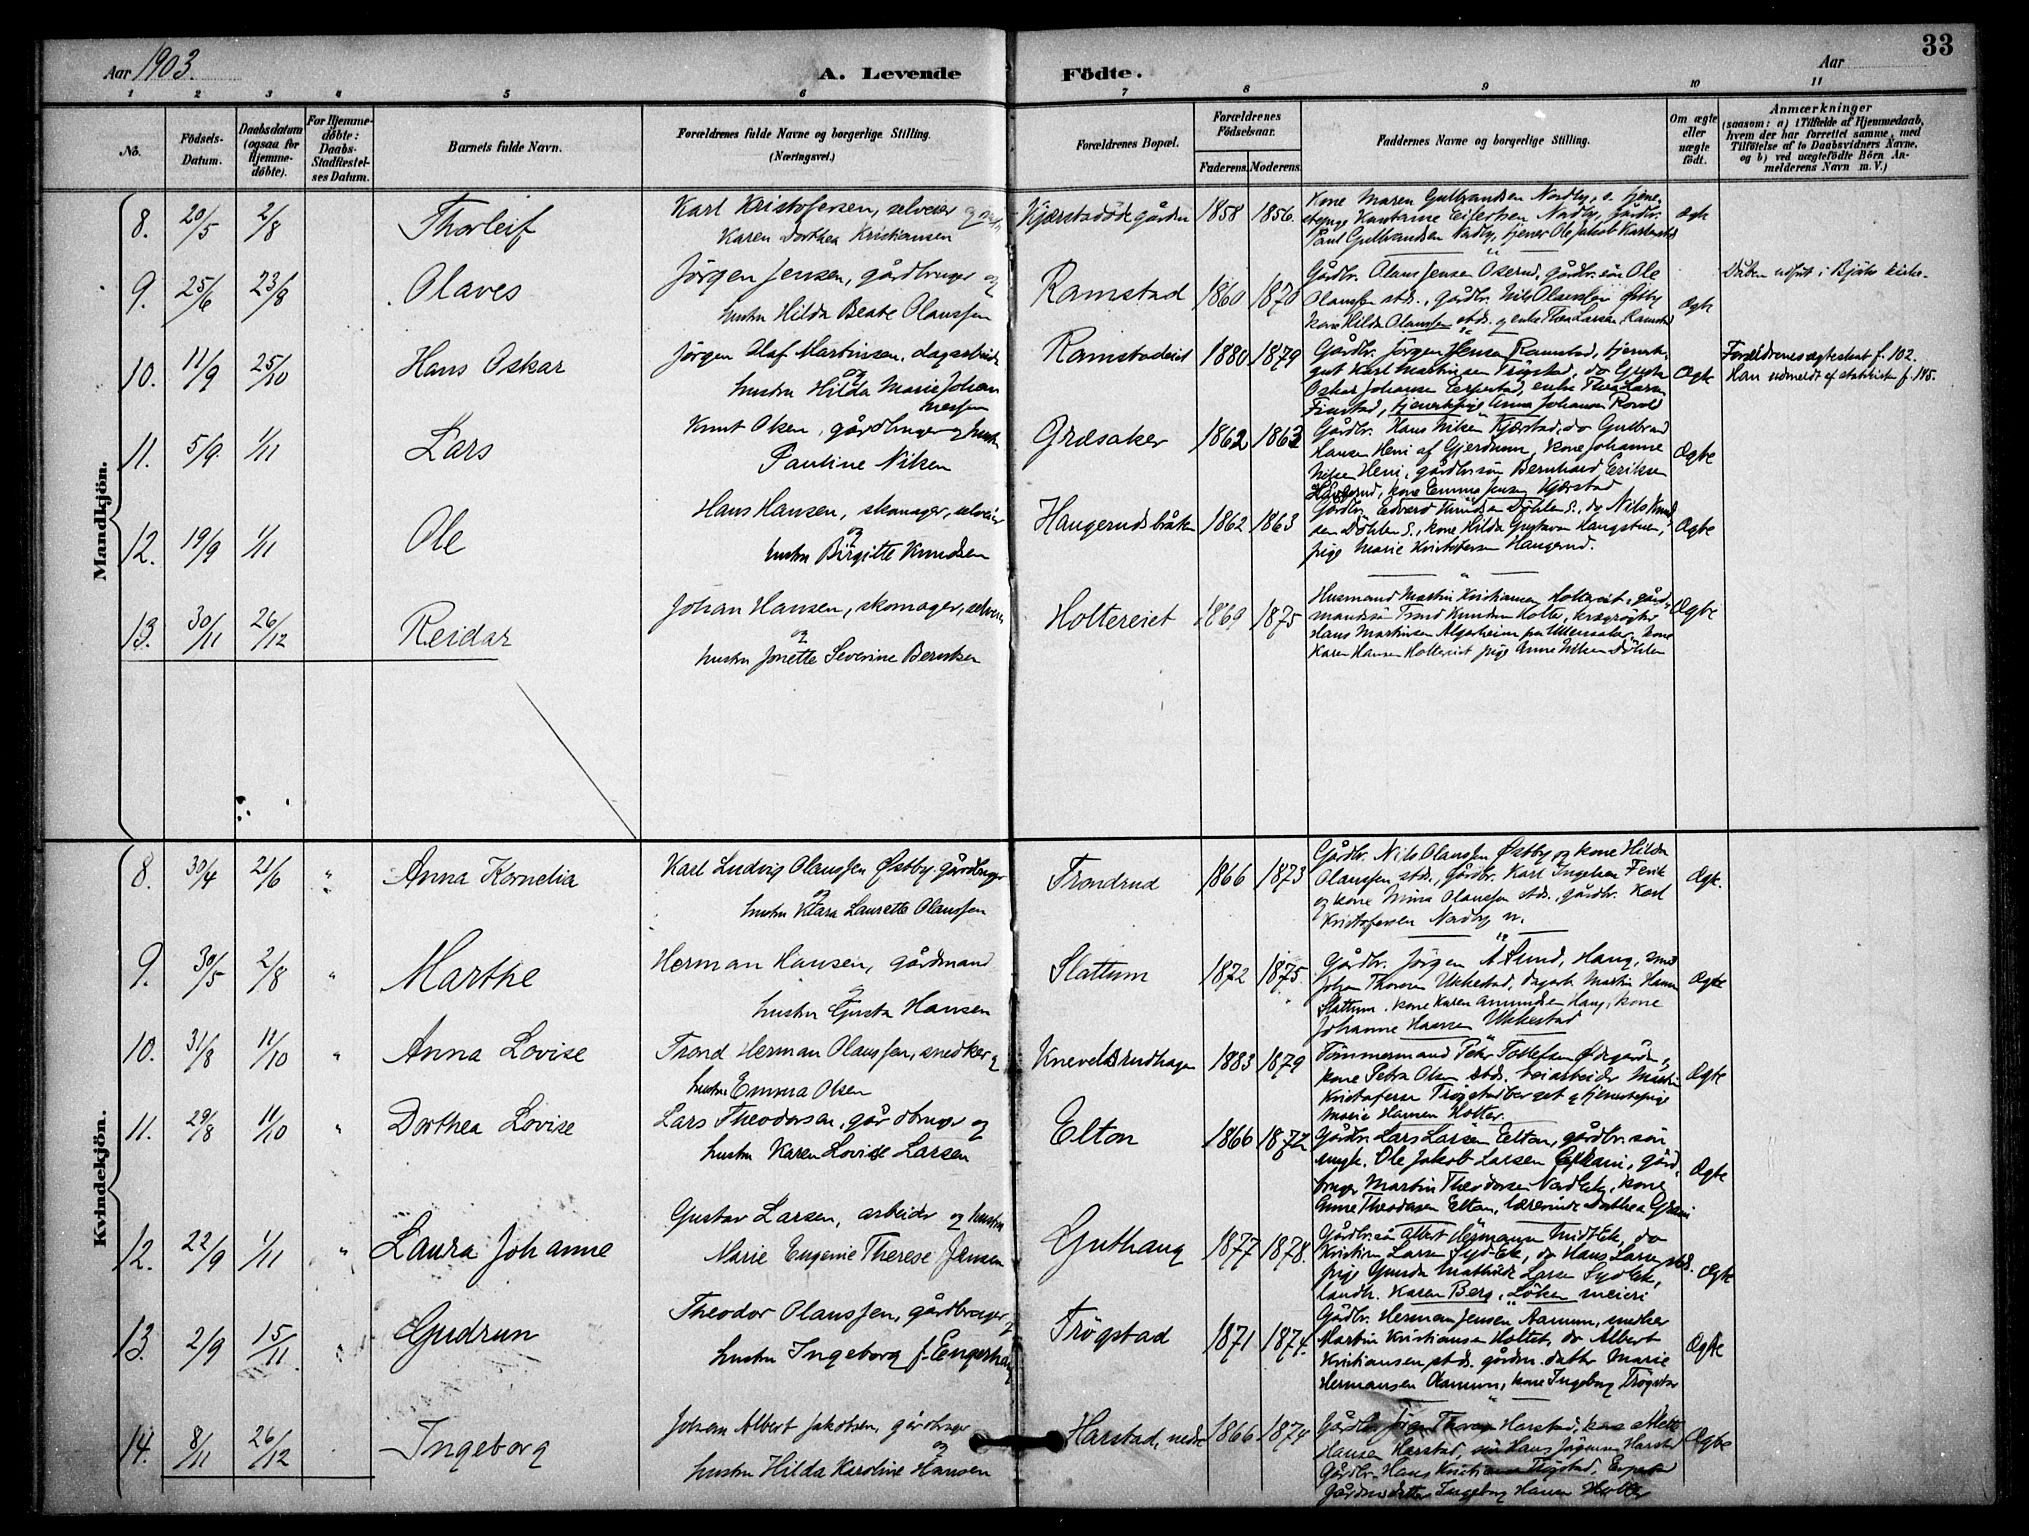 33
Aar 1903.
A. Levende Födte.
Aar
1 2 3 4 5 6 7 8 9 10 11
No.
Födsels-Datum.
Daabsdatum (ogsaa for Hjemme-döbte).
For Hjemme-döbte: Daabs-Stadfæstel-ses Datum.
Barnets fulde Navn.
Forældrenes fulde Navne og borgerlige Stilling. (Næringsvei.)
Forældrenes Bopæl.
Forældrenes Födselsaar.
Faderens. Moderens.
Faddernes Navne og borgerlige Stilling.
Om ægte eller uægte födt.
Anmærkninger
(saasom: a) i Tilfælde af Hjemmedaab, hvem der har forrettet samme, med Tilföielse af to Daabsvidners Navne, og b) ved uægtefödte Börn An-melderens Navn m.V.)
Mandkjön.
8. 20/5 2/8 Thorleif
Karl Kristofersen, selveier og
Karen Dorthea Kristiansen
1858 1856.
Kone Maren Gulbrandsen Nordby,
Paul Gulbrandsen Nordby, tjener Ole Jakob
Ægte
9. 25/6 23/8 Olaves
Jörgen Jensen, gårdbruger og
hustru Hilda Beate Olaussen
Ramstad 1860 1870
Gårdbr. Olaus Jensen Åserud, gårdbr. sön Ole
Olaussen stds., gårdbr. Nils Olaussen Østby
kone Hilda Olaussen stds. og enke Thea Larsen Ramstad
Ægte
Dåben udfört i Bjöke kirke.
10. 11/9 25/10 Hans Oskar
Jörgen Olaf Martinsen, dagarbeider
og
hustru Hilda Marie Johan
nessen
Ramstadeiet 1880 1879
Gårdbr. Jörgen Jensen Ramstad, tjeneste-
gut Karl Martinsen Trögstad, do
Oskar Johansen, enke Thea Larsen
tjenestepige Anna Johansen
Ægte
Forældrenes ægtestand f. 102.
Han udmeldt af statskirken f. 145.
11. 5/9. 1/11 Lars
Knut Olsen, gårdbruger og hustru
Pauline Nilsen
Græsaker 1862 1863
Gårdbr. Hans Nilsen Kjærstad, do Gulbrand
Hansen Heni af Gjerdrum, kone Johanne
Nilsen Heni, gårdbr. sön Bernhard Eriksen
kone Emma Jensen Kjærstad
Ægte
12. 19/9 1/11 Ole
Hans Hansen, skomager, selveier
og
hustru Birgitte Knudsen
Haugerudsbråten 1862 1863
Gårdbr. Edvard Knudsen Döhlen S., do Nils Knud
sen Döhlen S., kone Hilda Gustava Haugstuen,
pige Marie Kristofersen Haugerud.
Ægte
13. 30/11 26/12 Reidar
Johan Hansen, skomager, selveier
og
hustru Jonette Severine Berntsen
Holtereiet 1869 1875
Husmand Martin Kristiansen Holtereiet, gård-
mandssön Trond Knudsen Holter, krægrögter
Hans Martinsen Algarheim på Ullensaker, kone
Karen Hansen Holtereiet pige Anne Nilsen Döhlen
Ægte
Kvindekjön.
8. 30/4 21/6 " Anna Kornelia
Karl Ludvig Olaussen Østby, gårdbruger
og
hustru Klara Laurette Olaussen
Trondrud 1866 1873
Gårdbr. Nils Olaussen Østby og kone Hilda
Olaussen stds., gårdbr. Karl Ingelsen
og kone Mina Olaussen stds., gårdbr. Karl
Kristofersen Nordby n.
Ægte.
9. 30/5 2/8 " Marthe
Herman Hansen, gårdmand
og
hustru Gusta Hansen
Slattum 1872 1875.
Gårdbr. Jörgen Åslund, Haug,
Johan Thoresen Ukkestad, dagarb. Martin Hansen
Slattum, kone Karen Amundsen Haug, kone
Johanne Hansen Ukkestad
Ægte
10. 31/8 11/10 " Anna Lovise
Trond Herman Olaussen, snedker og
hustru Emma Olsen
Knevelsrudhagen 1883 1879
Tömmermand Peter Tollefsen Ødegården,
kone Petra Olsen stds. veiarbeider Martin
Kristofersen Trögstadberget og tjenestepige
Marie Hansen Holter.
Ægte
11. 29/8 11/10 " Dorthea Lovise
Lars Theodorsen, gårdbruger og
hustru Karen Lovise Larsen
Elton 1866 1872
Gårdbr. Lars Larsen Elton, gårdbr. sön
ungk. Ole Jakob Larsen, gård-
bruger Martin Theodorsen Nordlek, kone
Anne Theodorsen Elton, lærerinde Dorthea
Ægte
12. 22/9 1/11 " Laura Johanne
Gustav Larsen, arbeider og hustru
Marie Eugenie Therese Jensen
Guthaug 1877 1878.
Gårdbr. sön Albert Hermansen, do
Kristian Larsen, do Hans Larsen stds.
pige Gunda Mathilde Larsen,
landh. Karen Berg, Löken meieri
Ægte
13. 2/9 15/11 " Gudrun
Theodor Olaussen, gårdbruger og
hustru Ingeborg f. Engerhaug
Trögstad 1871 1874.
Gårdbr. Herman Jensen Aamun,
Martin Kristiansen Holtet, do Albert
Kristiansen stds. gårdm. datter Marie
Hermansen Aamun, kone Ingeborg Trögstad
Ægte
14. 8/11 26/12 Ingeborg
Johan Albert Jakobsen, gårdbruger
og
hustru Hilda Karoline Hansen
Harstad, nedre 1866 1874
Gårdbr. Harstad, kone
Hansen Harstad, sön Hans Jörgensen Harstad
Gårdbr. Hans Kristiansen Trögstad,
Gårdmandsdatter Ingeborg Hansen Holter
Ægte